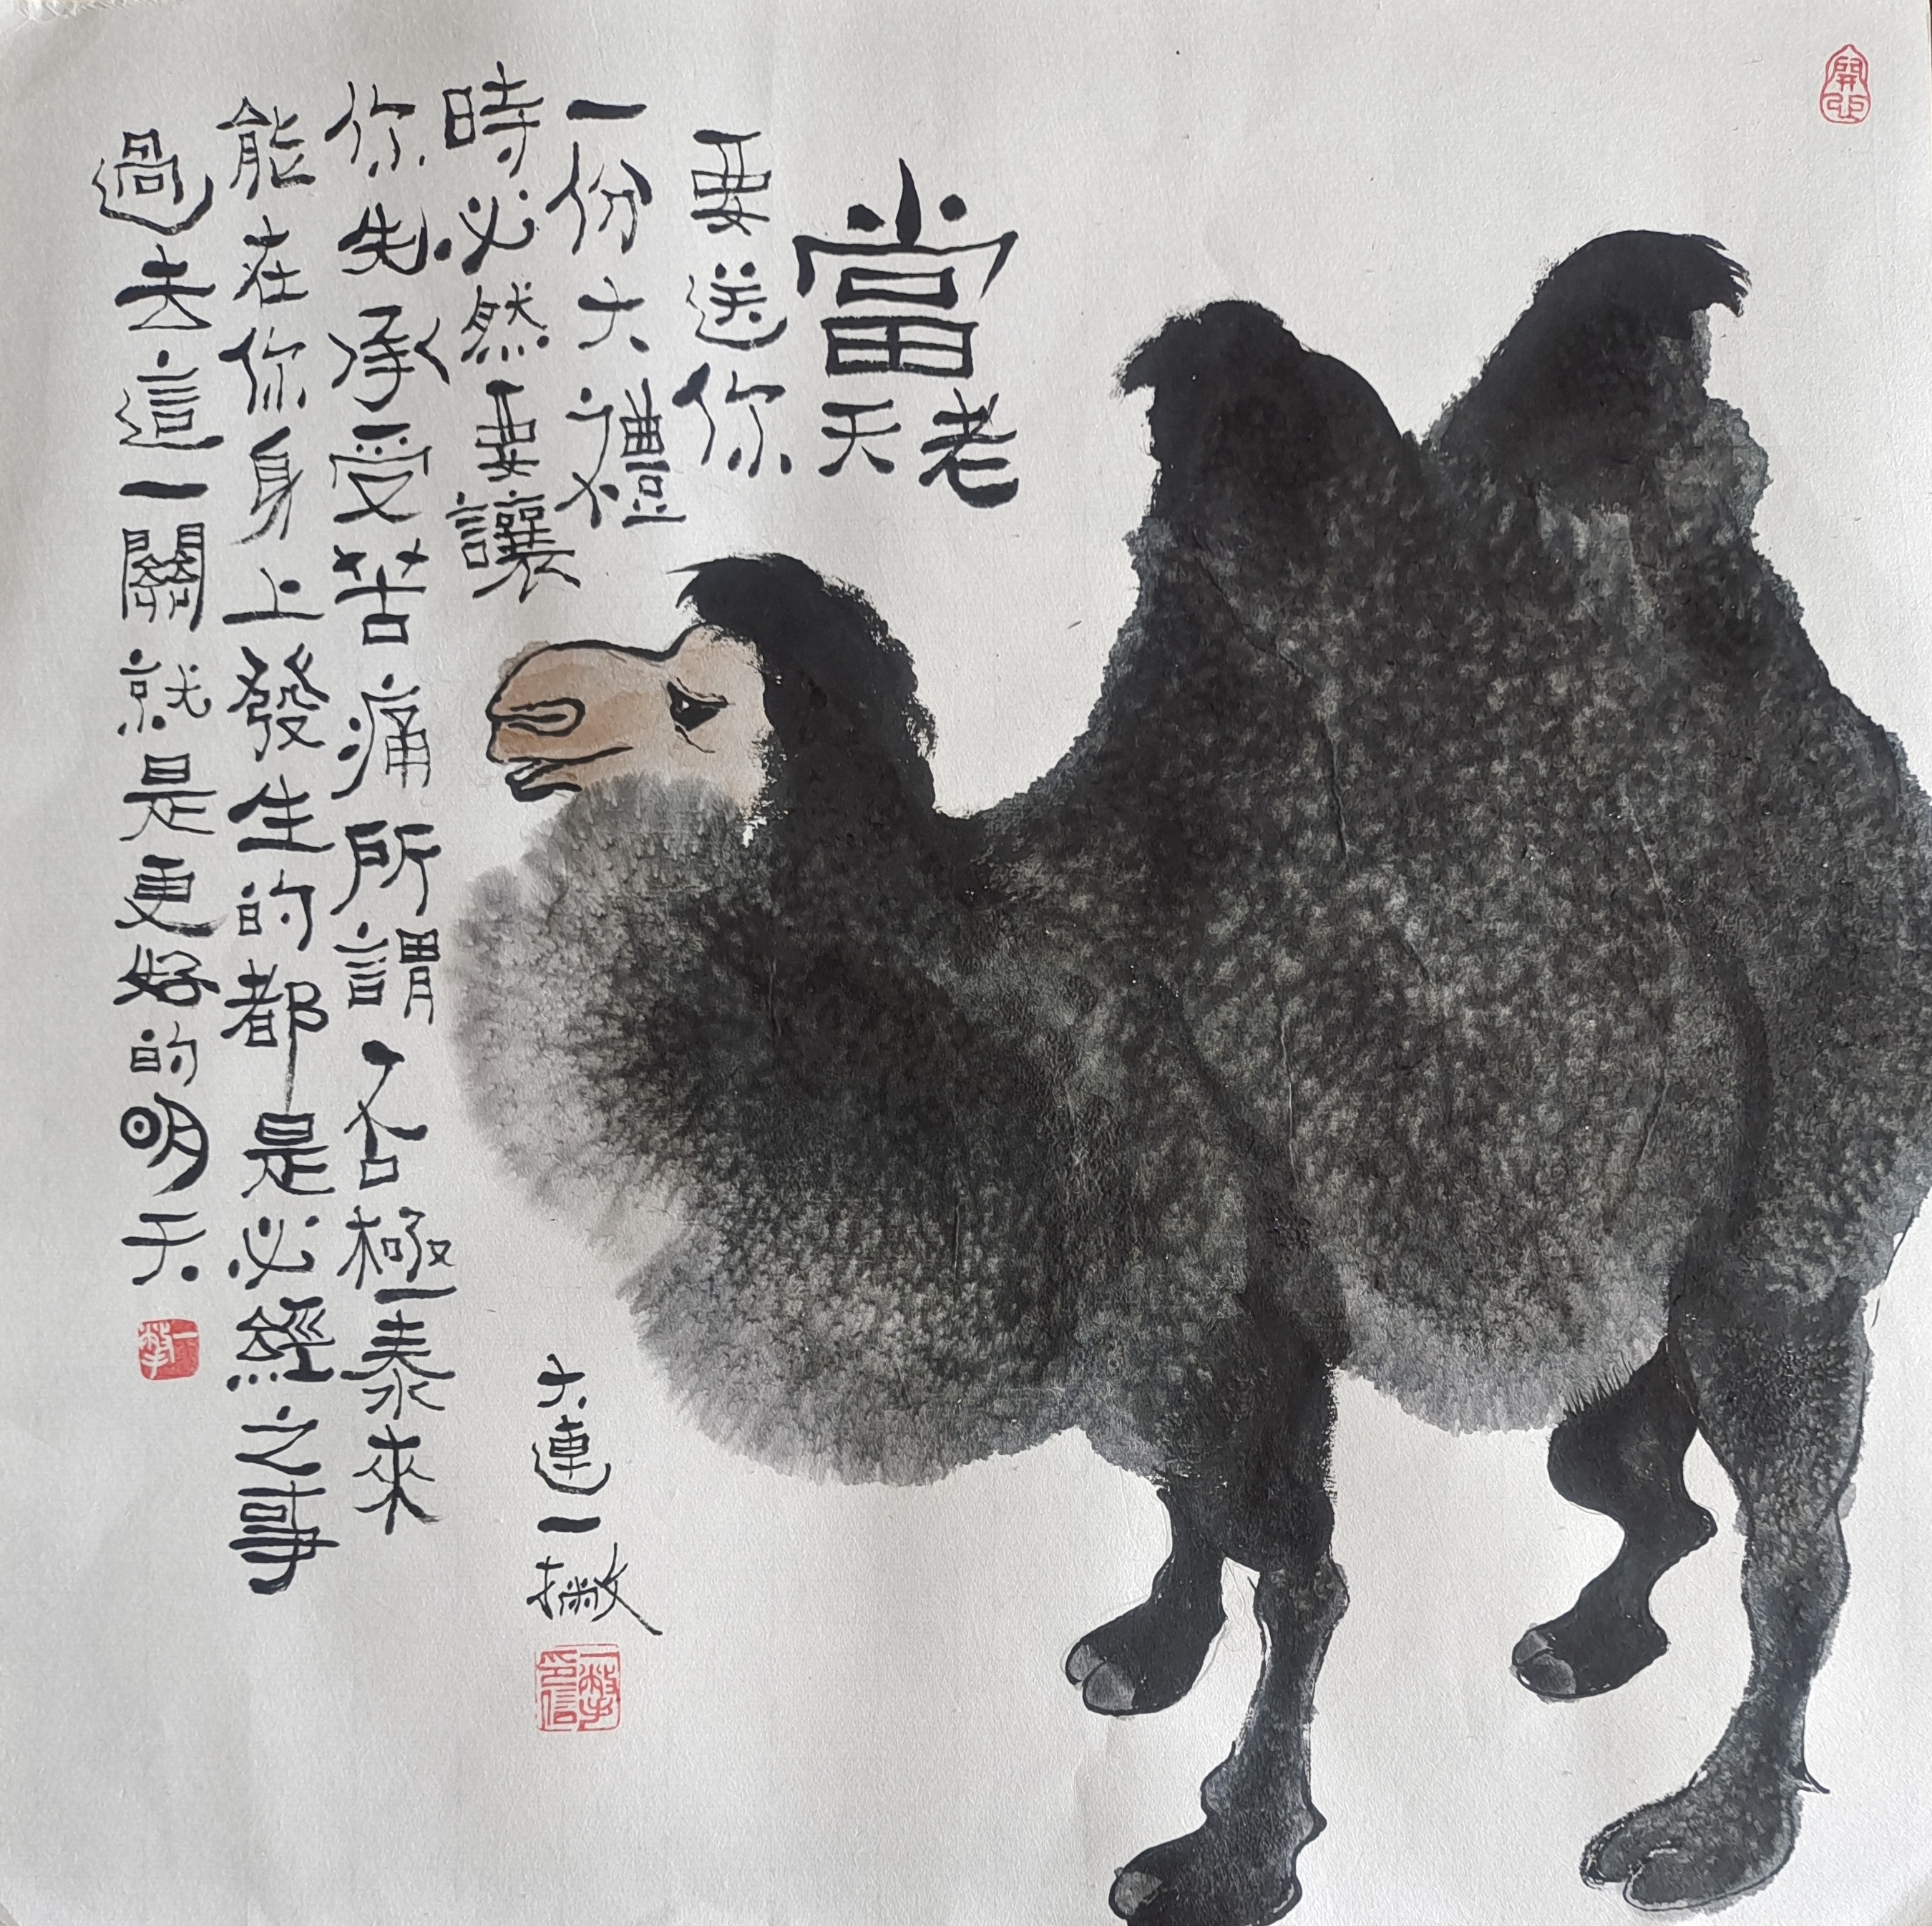 當
老天
要送你
一份大禮
時必然要讓
你先承受苦痛所謂否極泰來
能在你身上發生的都是必經之事
過去這一關就是更好的明天
大連一撇